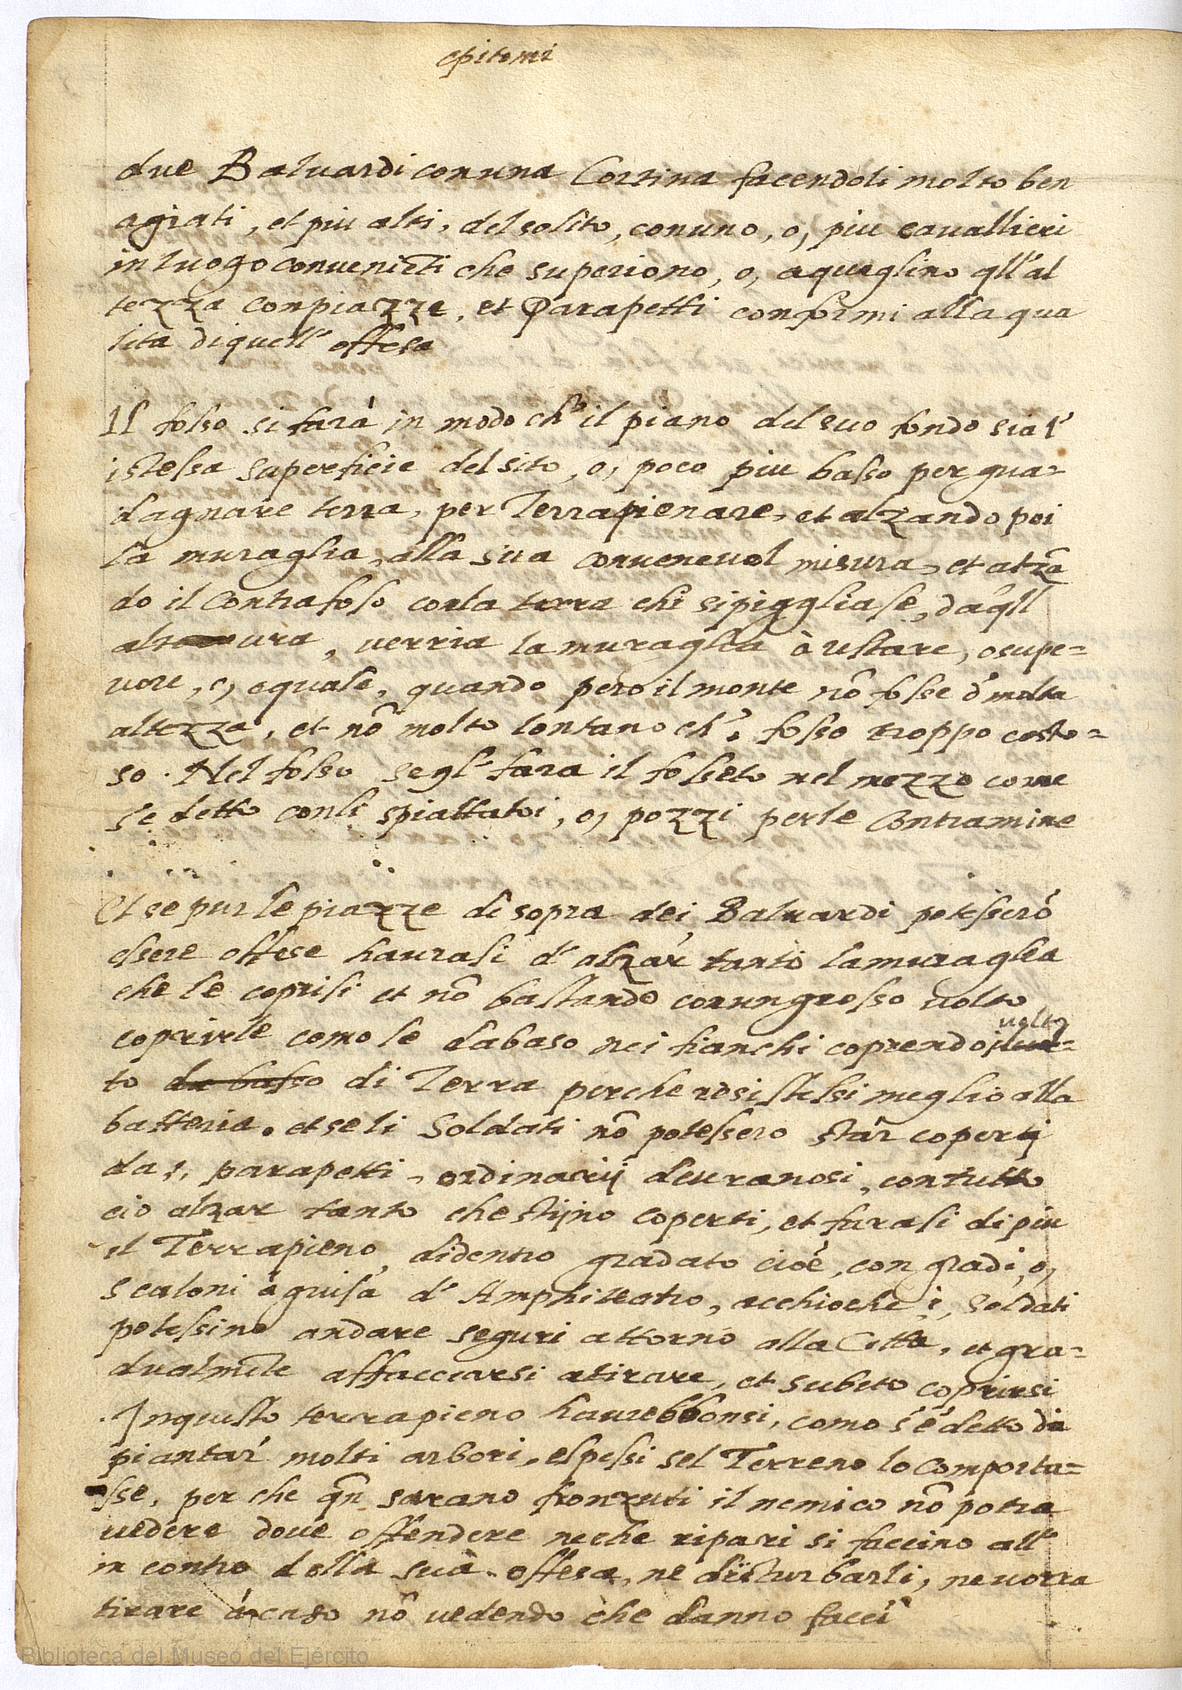 epitomi
due Baluardi con una Cortina facendoli molto ben
agiati, et piu alti, del solito, con uno, o, piu cavallieri
in luogo convenieti che superiono, o, aqueglino qll'al
tezza con piazze, et Parapetti conformi alla qua
lita di quell' offesa
Il fosso si farà in modo ch' il piano del suo fondo sia l'
istessa superficie del sito, o, poco piu basso per gua-
dagnare terra, per Terrapienare, et alzando poi
la muraglia, alla sua convenevol misura, et alzã
do il Contrafoso con la terra chi si pigliase, da qll
altura, verria la muraglia à restare, o supe-
riore, o, equale, quando pero il monte nõ fosse d' molta
altezza, et nõ molto lontano ch'l fosso troppo costo-
so. Nel fosso segl' fara il fosseto nel mezzo come
se detto con li spiattatoi, o, pozzi per le Contramine
Et se pur le piazze di sopra dei Baluardi potesserò
essere offese haurasi d' alzàr tanto la muraglia
che le coprisi et nõ bastando con un grosso volto
coprirle como le da baso nei fianchi coprendo il
volto
to da basso di Terra perche resistessi meglio alla
batteria. et se li Soldati nõ potessero stàr coperti
da i, parapetti, ordinarij deuranosi, con tutto
cio alzar tanto che stijno coperti, et farasi di piu
il Terrapieno, di dentro gradato cioè, con gradi, o,
scaloni à guisa d' Amphiteatro, acchioche, i, Soldati
potessino andare seguri attorno alla Citta, et gra-
dualmẽte affacciarsi a tirare, et subito coprirsi
In questo terrapieno haurebbonsi, como s'è detto da
piantar' molti arbori, e spessi sel Terreno lo comporta-
sse, per che qñ sarano fronzuti il nemico nõ potra
vedere dove offendere ne che ripari si faccino all'
in contro della sua offesa, ne disturbarli, ne vorra
tirare à caso nõ vedendo che danno facci
Biblioteca del Museo del Ejército